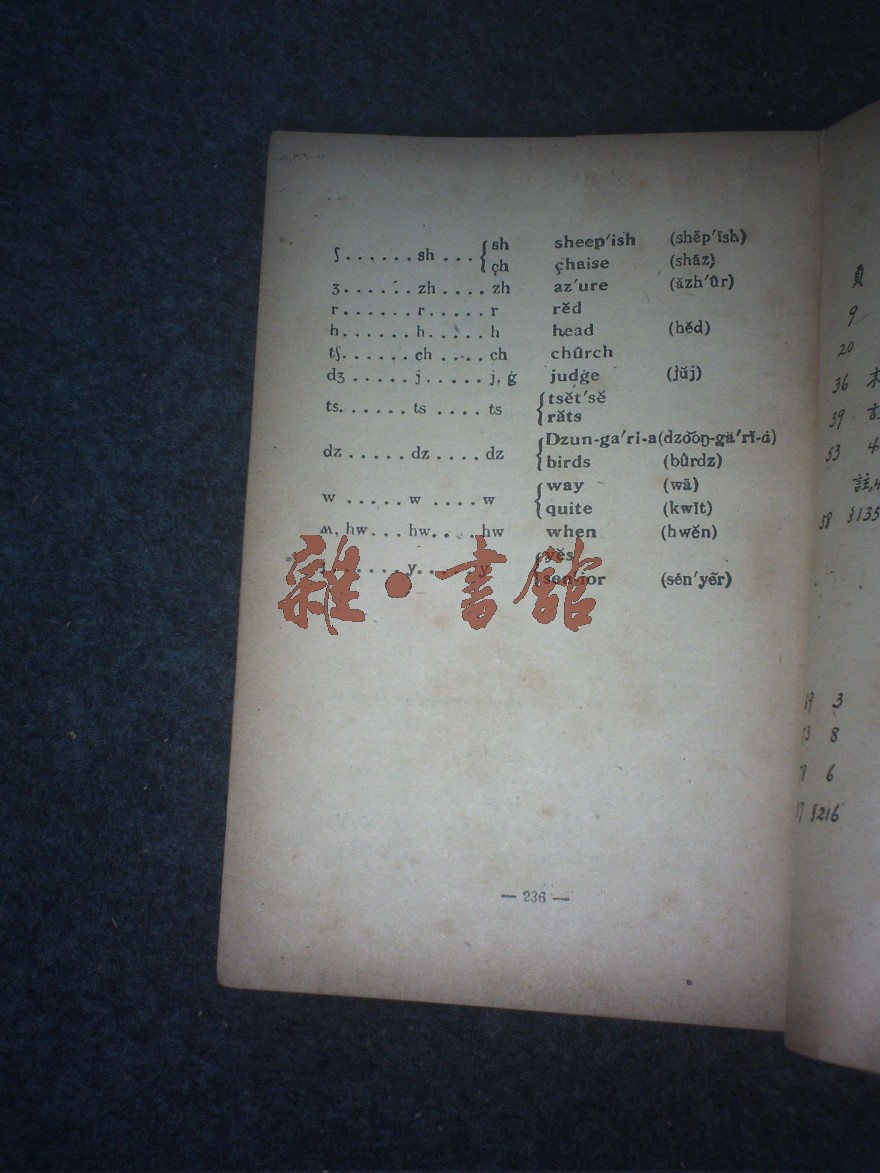 ʃ . . . . . . sh . . . { sh sheep′ish (shēp′ĭsh)
çh çhaise (shāz)
ʒ . . . . . . zh . . . . zh az′ure (ăzh′ûr)
r . . . . . . r . . . . . r rĕd
h . . . . . . h . . . . . h head (hĕd)
tʃ . . . . . . ch . . . . ch chûrch
dʒ . . . . . j . . . . . j, ġ judġe (jŭj)
ts . . . . . . ts . . . . ts { tsĕt′sĕ
răts
dz . . . . . dz . . . . dz { Dzun-ga′ri-a (dzŏŏŋ-gä′rĭ-ȧ)
birds (bûrdz)
w . . . . . w . . . . w { way (wā)
quite (kwīt)
ʍ, hw . . . hw . . . . hw when (hwĕn)
. . . . . . y . . . . . y { yĕs
sen-ior (sēn′yẽr)
雜•書館
— 236 —
頁
9
20
36
39
53
註
58 §135
3
8
6
§216